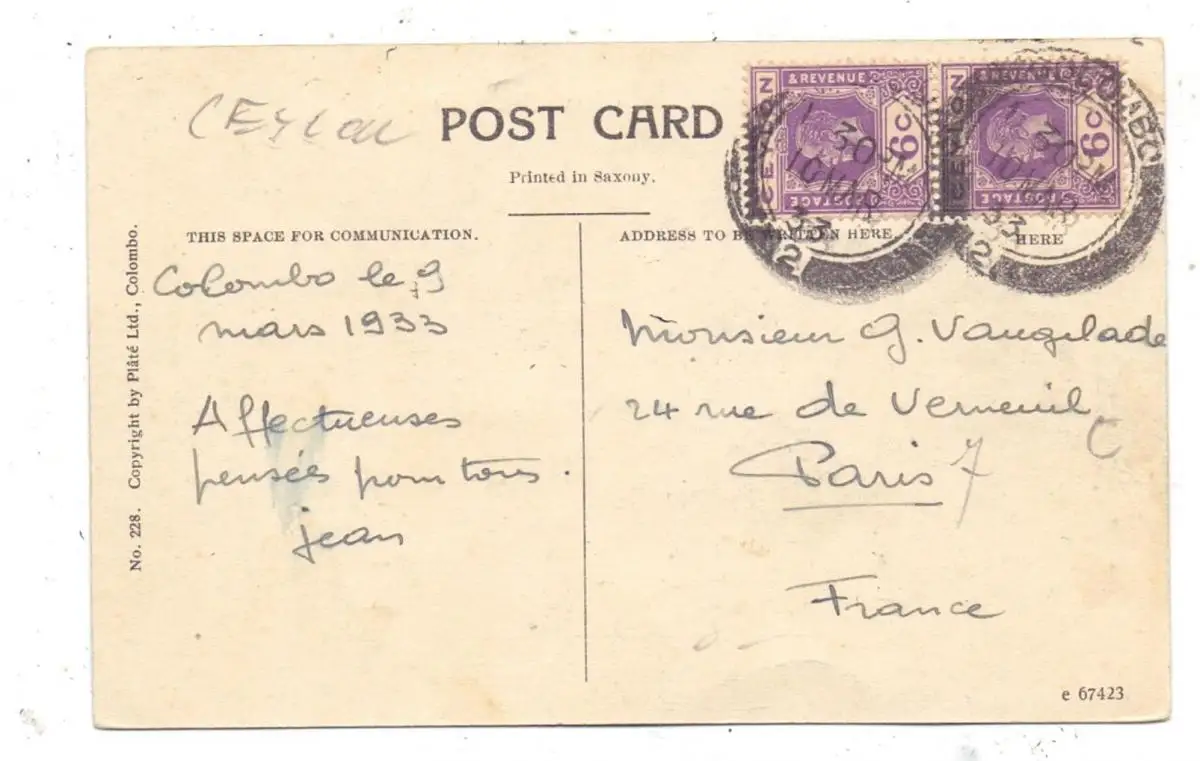 CEYLON
POST CARD
Printed in Saxony.
THIS SPACE FOR COMMUNICATION.
Colombo le 9
mars 1933
Affectueuses
pensées pour tous.
Jean
No. 228. Copyright by Plâté Ltd., Colombo.
CEYLON
& REVENUE
POSTAGE
6C
1 30 PM
10 MAR
33
2
CEYLON
& REVENUE
POSTAGE
6C
COLOMBO
1 30 PM
10 MAR
33
2
ADDRESS TO BE WRITTEN HERE
HERE
Monsieur G. Vaugelade
24 rue de Verneuil
Paris 7
France
e 67423